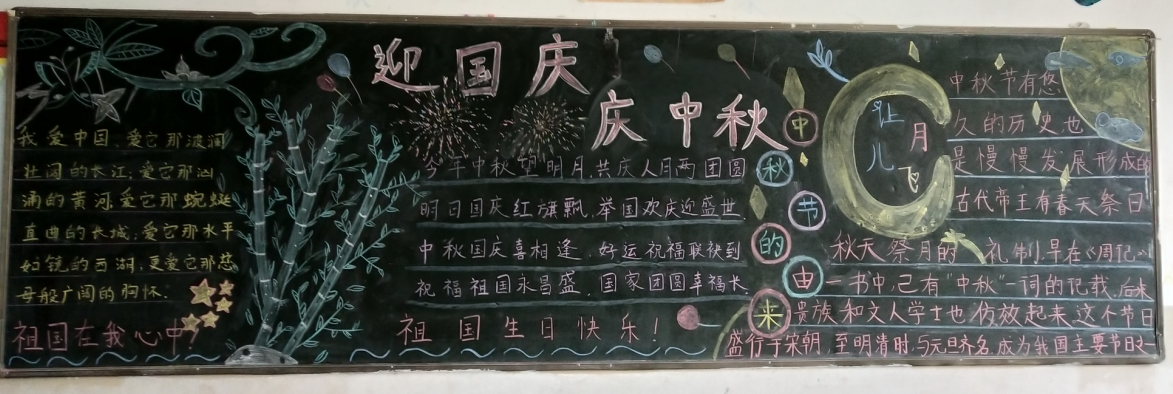 迎国庆
庆中秋
我爱中国，爱它那波澜
壮阔的长江；爱它那汹
涌的黄河，爱它那蜿蜒
直曲的长城；爱它那水平
如镜的西湖；更爱它那慈
母般广阔的胸怀.
祖国在我心中！
今年中秋望明月，共庆人月两团圆
明日国庆红旗飘，举国欢庆迎盛世
中秋国庆喜相逢，好运祝福联袂到
祝福祖国永昌盛，国家团圆幸福长
祖国生日快乐！
中秋节的由来
让月儿飞
中秋节有悠
久的历史也
是慢慢发展形成的
古代帝王有春天祭日
秋天祭月的礼制，早在《周记》
一书中，已有“中秋”一词的记载.后来
贵族和文人学士也仿效起来这个节日
盛行于宋朝，至明清时，与元旦齐名，成为我国主要节日之一